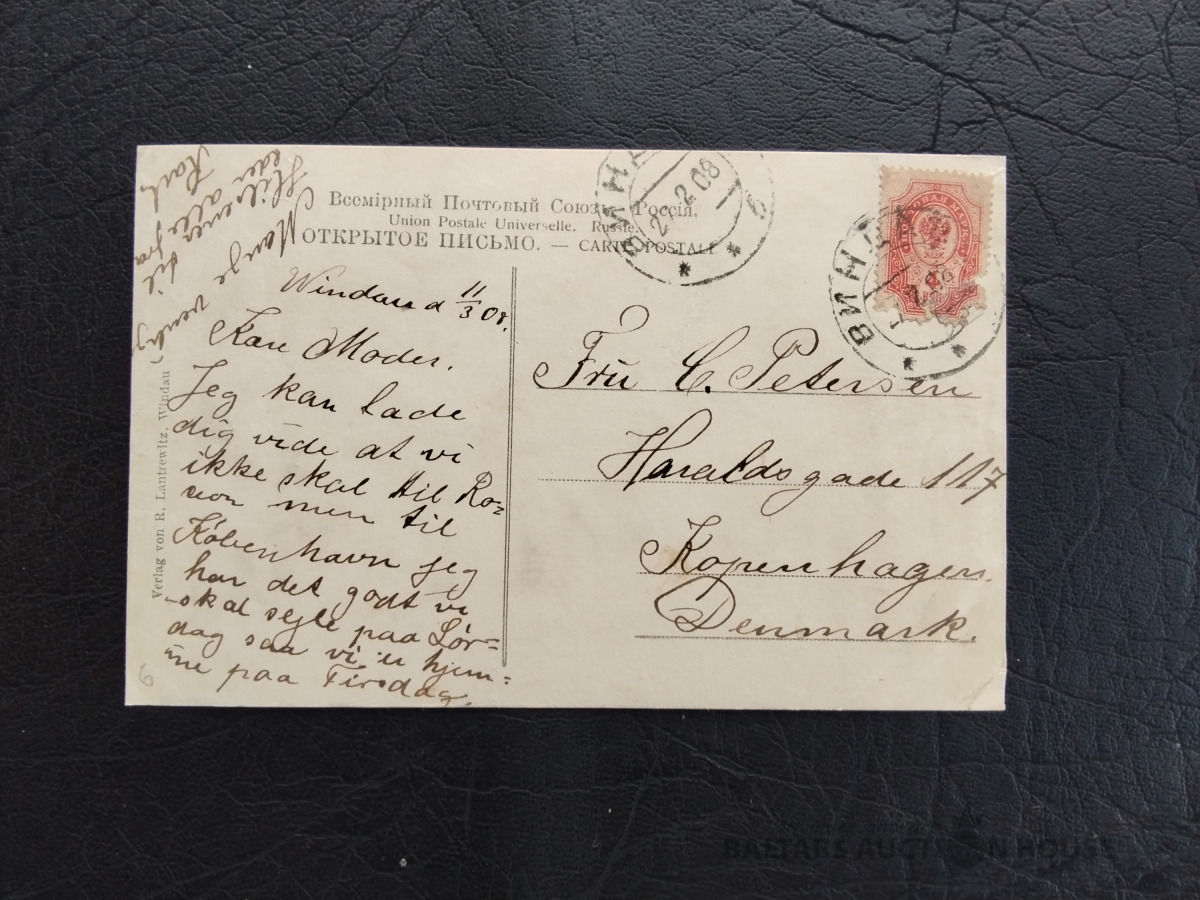 Всемірный Почтовый Союзъ. Россія.
Union Postale Universelle. Russie.
ОТКРЫТОЕ ПИСЬМО. — CARTE POSTALE
Mange venlige
Hilsener til
eder alle fra
Karl.
Windau d 11/3 08.
Kære Moder.
Jeg kan lade
dig vide at vi
ikke skal til Ro=
men til
København jeg
har det godt vi
skal sejle paa Lør=
dag saa vi er hjem=
me paa Tirsdag.
Verlag von R. Lantrewitz, Windau
Frü C. Petersen
Haraldsgade 117
Kopenhagen.
Denmark.
ВИНД
27 2 08
б
ВИНД
08
6
BALTARS AUCTION HOUSE